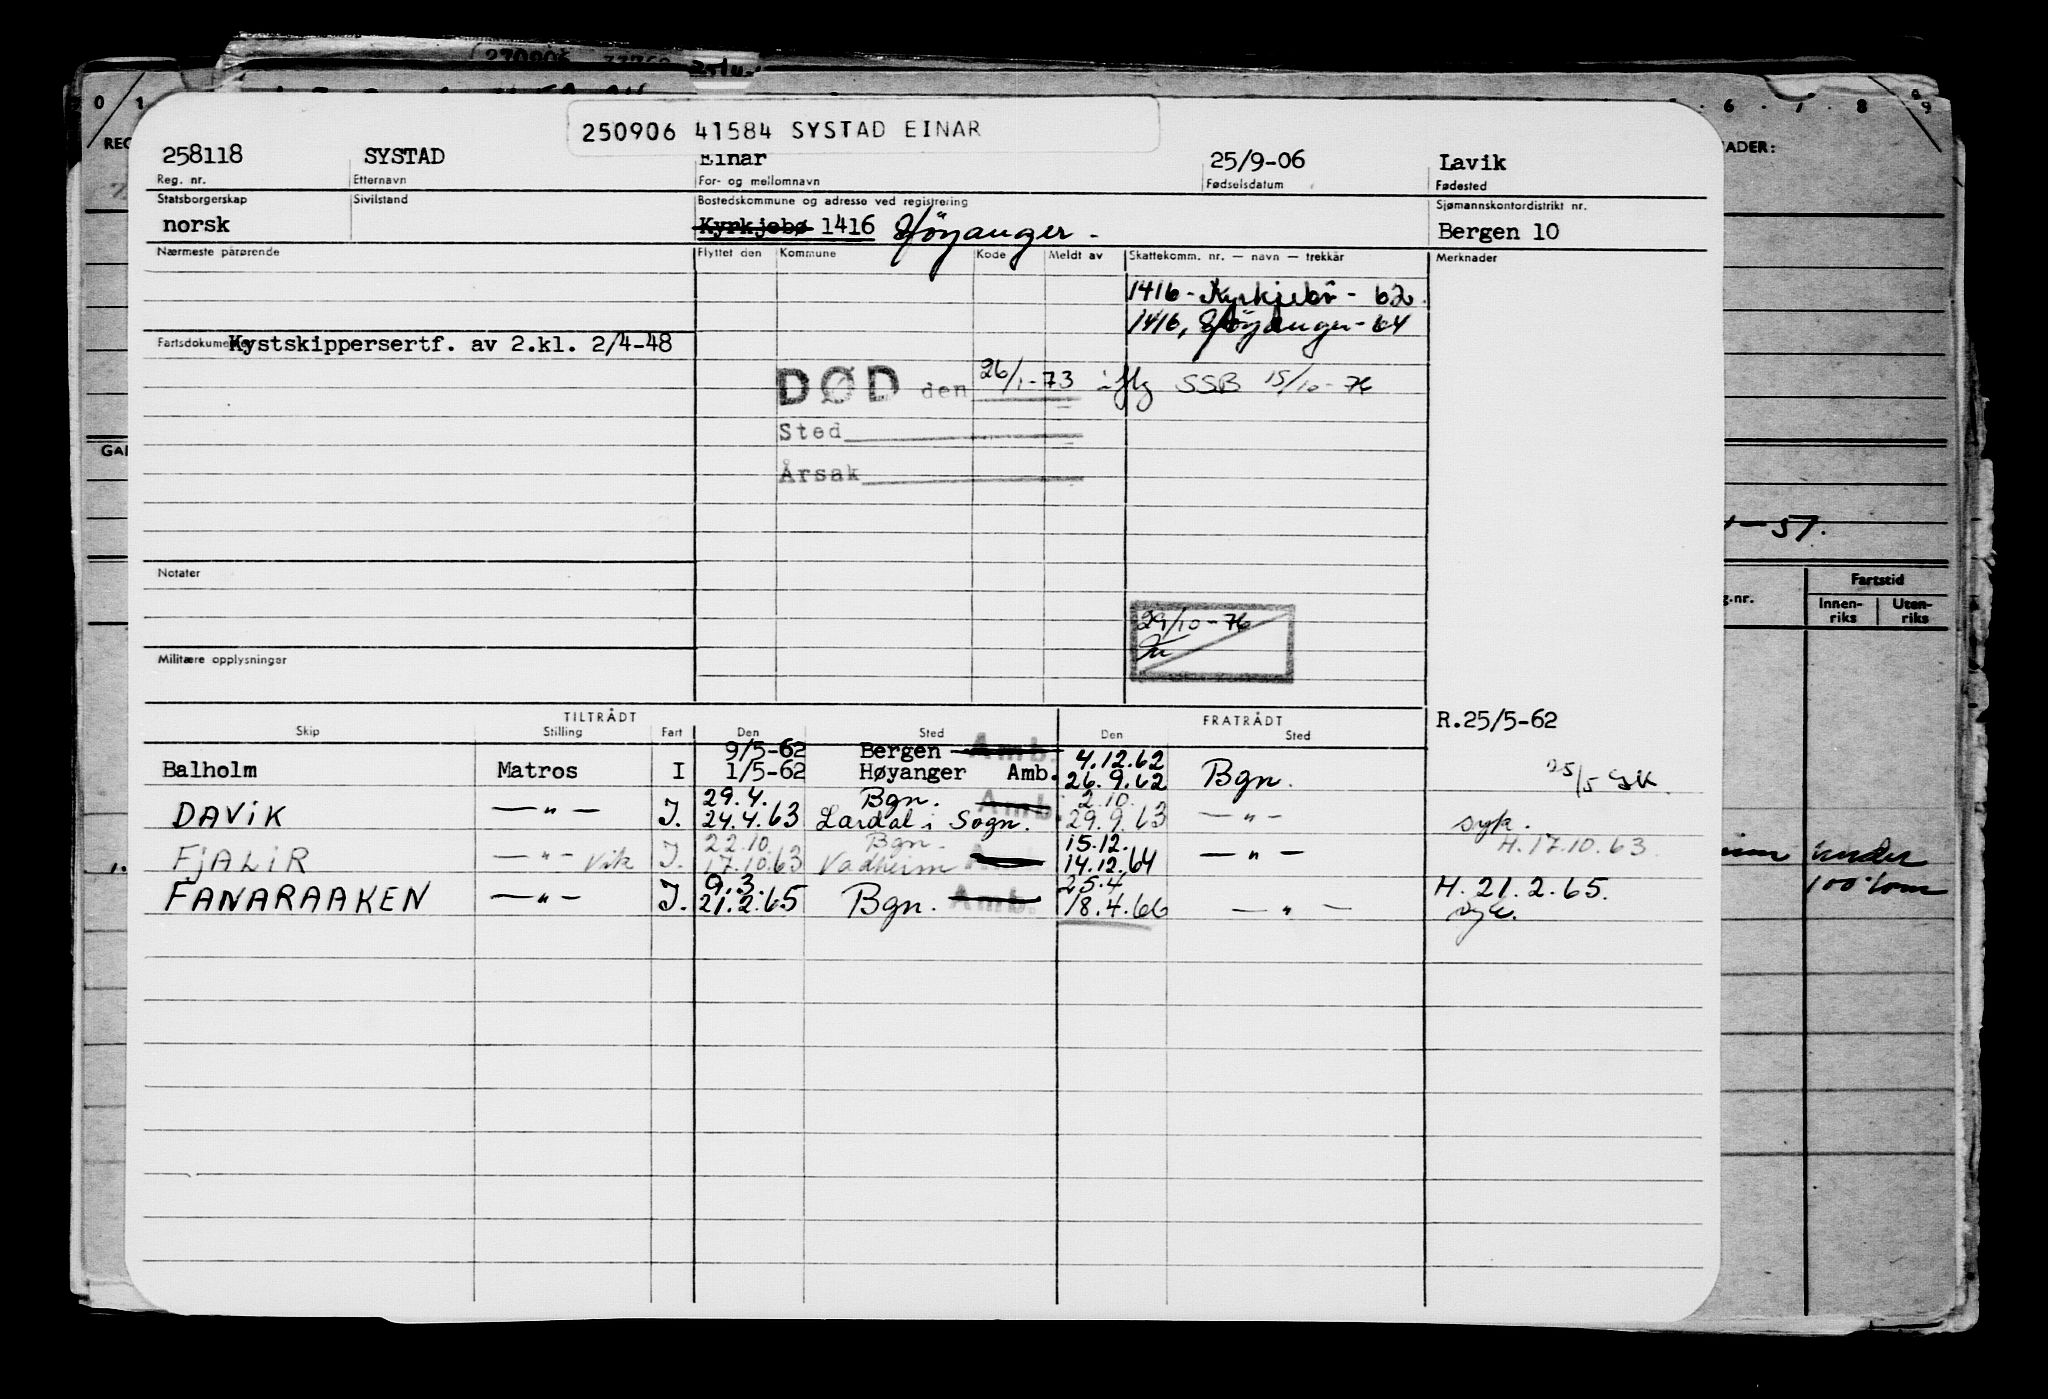 270906
0 1
6 . 7 . 8 . 9
REG
ADER:
250906 41584 SYSTAD EINAR
258118 SYSTAD Einar 25/9-06 Lavik
Reg. nr. Etternavn For- og mellomnavn Fødselsdatum Fødested
Statsborgerskap Sivilstand Bostedskommune og adresse ved registrering Sjømannskontordistrikt nr.
norsk Kyrkjebø 1416 Höyanger - Bergen 10
Nærmeste pårørende Flyttet den Kommune Kode Meldt av Skattekomm. nr. — navn — trekkår Merknader
1416 - Kyrkjebö - 62
1416, Höyanger - 64
Fartsdokumenter Kystskippersertf. av 2.kl. 2/4-48
DØD den 26/1-73 iflg SSB 15/10-76
Sted
Årsak
GAI
-57.
Notater
29/10-76
Militære opplysninger
g.nr. Fartstid
Innen-riks Uten-riks
TILTRÅDT FRATRÅDT R.25/5-62
Skip Stilling Fart Den Sted Den Sted
9/5-62 Bergen Amb. 4.12.62
Balholm Matros I 1/5-62 Høyanger Amb. 26.9.62 Bgn. 25/5 SK.
29.4. Bgn. Amb. 2.10.
DAVIK — " — I. 24.4.63 Lærdal i Sogn. 29.9.63 — " — syk.
22.10. Bgn. 15.12. H.17.10.63.
FJALIR — " — vik I. 17.10.63 Vadheim Amb. 14.12.64 — " —
9.3. 25.4 H. 21.2.65.
FANARAAKEN — " — I. 21.2.65 Bgn. Amb. 18.4.66 — " — syk.
under
100 tonn